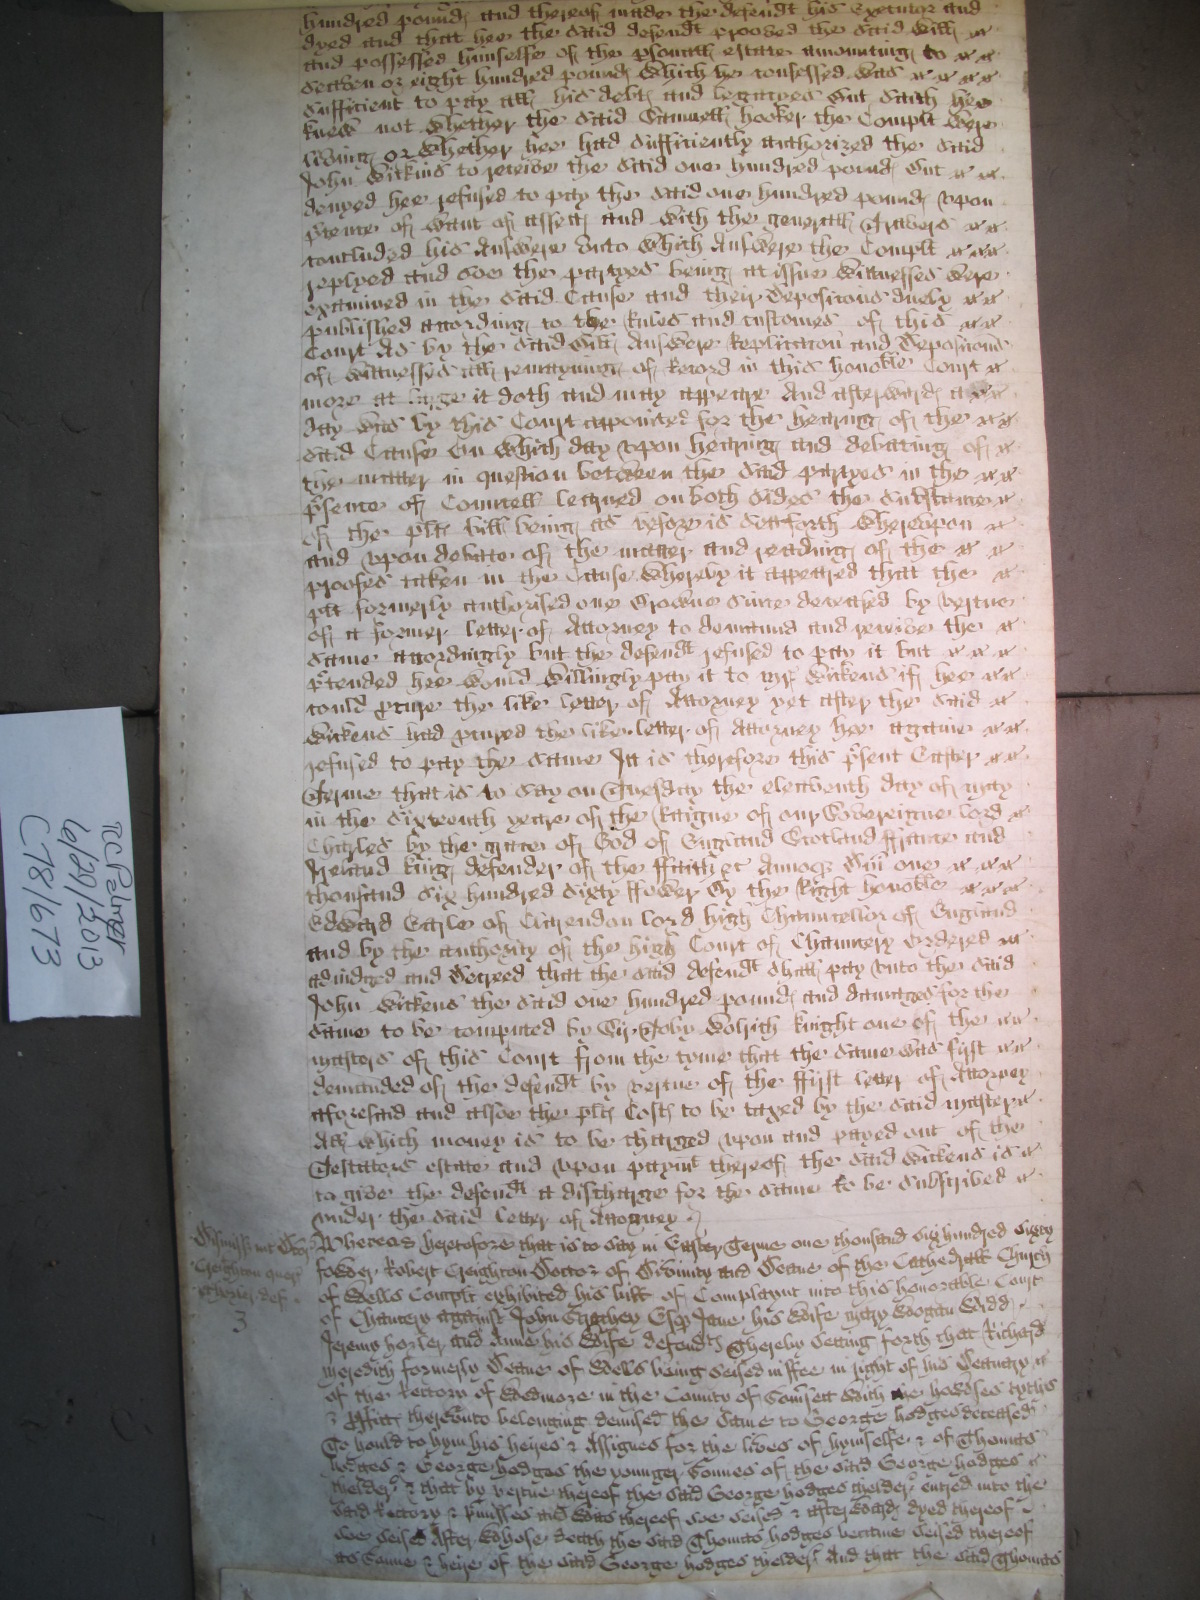 hundred pounds and thereof made the defendt his Executor and
dyed and that hee the said defendt prooved the said Will
and possessed himselfe of the psonall estate amounting to
Seaven or eight hundred pounds Which he confessed was
sufficient to pay all his debts and legacyes But saith hee
knew not Whether the said Samuell hooker the Complt were
liveing or Whether hee had sufficiently authorized the said
John Wickins to receive the said one hundred pounds But
denyed hee refused to pay the said one hundred pounds upon
ptence of want of assetts and with the generall Travers
concluded his Answere Unto Which Answere the Complt
replyed and soe the partyes being at issue Wittnesses were
examined in the said Cause and their Depositions duely
published according to the Rules and customes of this
Court As by the said Bill Answere Replicacion and Depositions
of Wittnesses all remayning of Record in this honoble Court
more at large it doth and may appeare And afterwards a
day was by this Court appointed for the hearing of the
said Cause On Which day upon hearing and debating of
the matter in question between the said partyes in the
psence of Councell learned on both sides the substance
of the plts bill being as before is settforth Whereupon
and upon debate of the matter and reading of the
proofes taken in the Cause Whereby it appeared that the
plt formerly authorised one Browne since deceased by vertue
of a former letter of Attorney to demaund and receive the
same accordingly but the defendt refused to pay it but
ptended hee would Willingly pay it to Wickens if hee
could pcure the like letter of Attorney yet after the said
Wickens had pcured the like letter of Attorney hee againe
refused to pay the same It is therefore this psent Easter
Terme that is to say on Tuesday the eleaventh day of may
in the sixteenth yeare of the Raigne of our Sovereigne lord
Charles by the grace of God of England Scotland ffrance and
Ireland King defender of the ffaith &c Annoq Dni one
thousand six hundred sixty ffower By the Right honoble
Edward Earle of Clarendon lord high Chancellor of England
and by the authority of the high Court of Chauncery ordered
adiudged and Decreed that the said defendt shall pay unto the said
John Wickens the said one hundred pounds and damages for the
same to be computed by Sir Toby Wolrich Knight one of the
masters of this Court from the tyme that the same was first
demanded of the defendt by vertue of the ffirst letter of Attorney
aforesaid and alsoe the plts Costs to be taxed by the said master
All which money is to be charged upon and payed out of the
Testators estate and upon paymt thereof the said Wickens is
to give the defendt a discharge for the same to be subscribed
under the said letter of Attorney
Creighton quer
3
Whereas heretofore that is to say in Easter Terme one thousand six hundred sixty
fower Robert Creighton Doctor of Divinity and Deane of the Cathedrall Church
of Wells Complt exhibited his bill of Complaynt into this honorable Court
of Chancery against John Strachey Esqr Jane his Wife mary Wogan Widd
Jeremy horler and Anne his Wife defendts Thereby setting forth that Richard
meredith formerly Deane of Wells being seised in ffee in right of his Deanary
of the Rectory of Wedmore in the County of Somsett With the howses tythes
& pffitts thereunto belonging demised the same to George hodges deceased
To hould to hym his heires & Assignes for the lives of hymselfe & of Thomas
hodges & George hodges the younger Sonnes of the said George hodges
thelder & that by vertue thereof the said George hodges thelder entred into the
said Rectory & pmisses and Was thereof soe seised & afterwards dyed thereof
soe seised After Whose death the said Thomas hodges became seised thereof
as Sonne & heire of the said George hodges thelder And that the said Thomas
TC Palmer
6/20/2013
C78/673